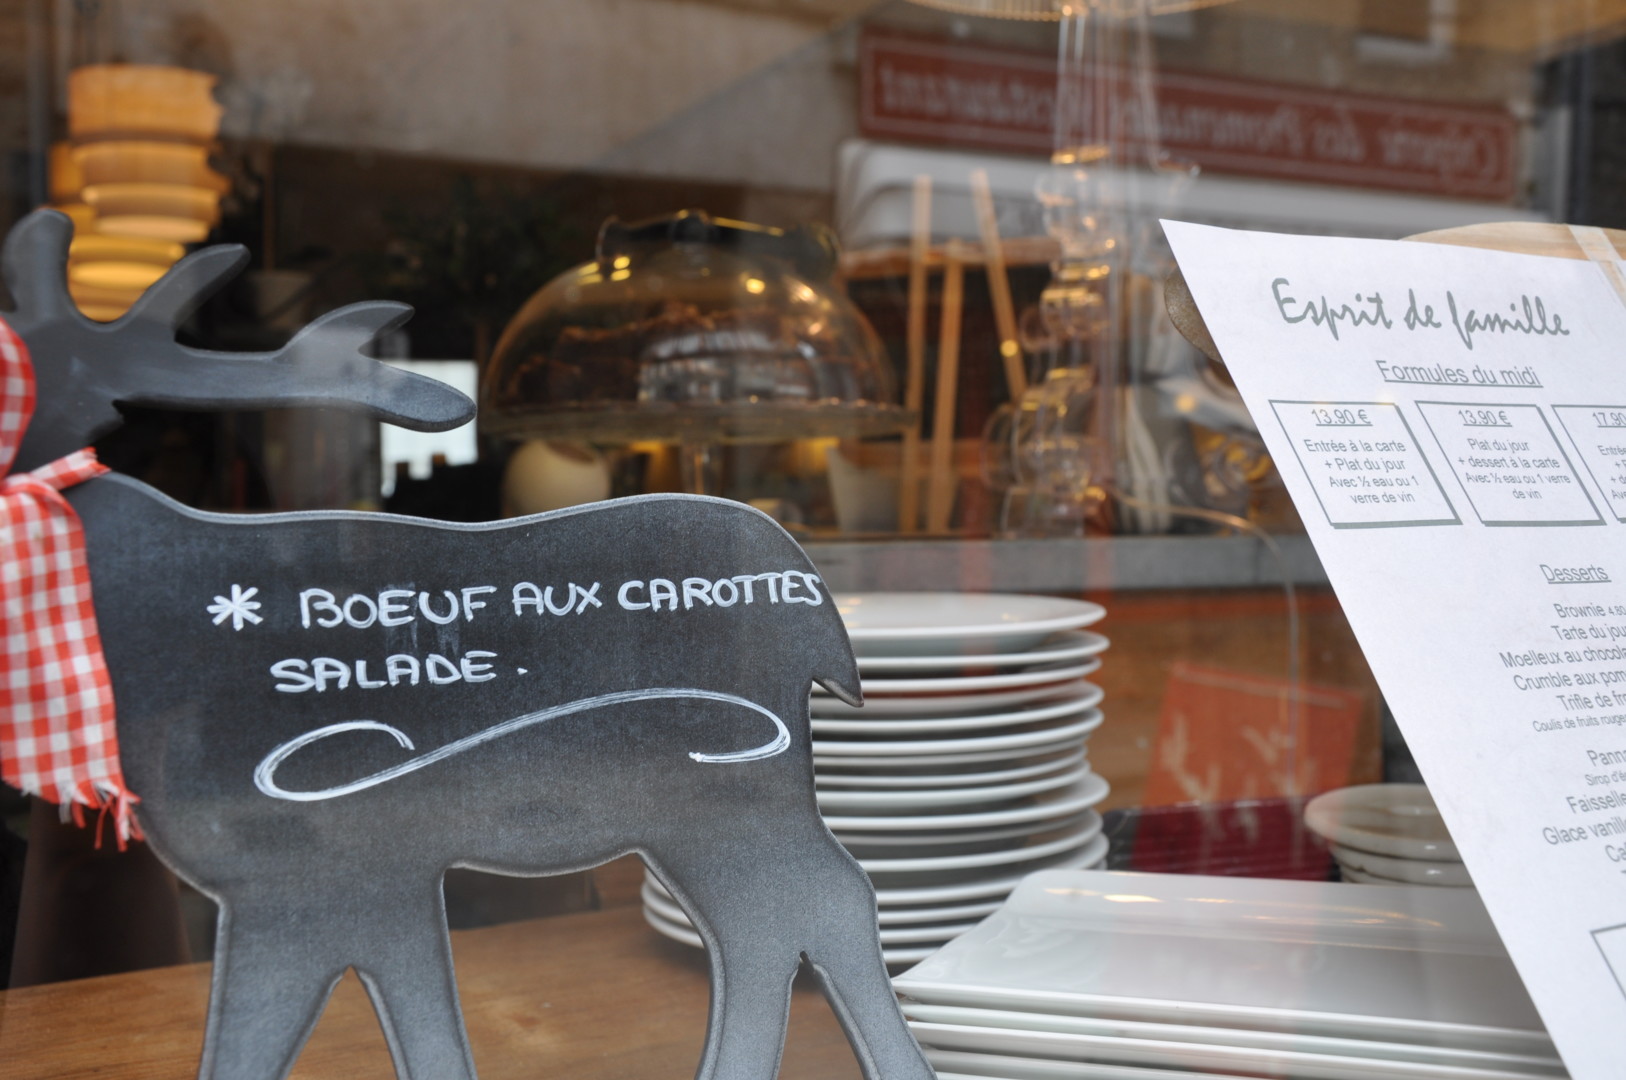 * BOEUF AUX CAROTTES
SALADE.
Esprit de famille
Formules du midi
13.90 €
Entrée à la carte
+ Plat du jour
Avec ½ eau ou 1
verre de vin
13.90 €
Plat du jour
+ dessert à la carte
Avec ½ eau ou 1 verre
de vin
17.90
Desserts
Brownie
Tarte du jou
Moelleux au chocola
Crumble aux pom
Trifle de fr
Coulis de fruits rouge
Pann
Sirop d'é
Faisselle
Glace vanill